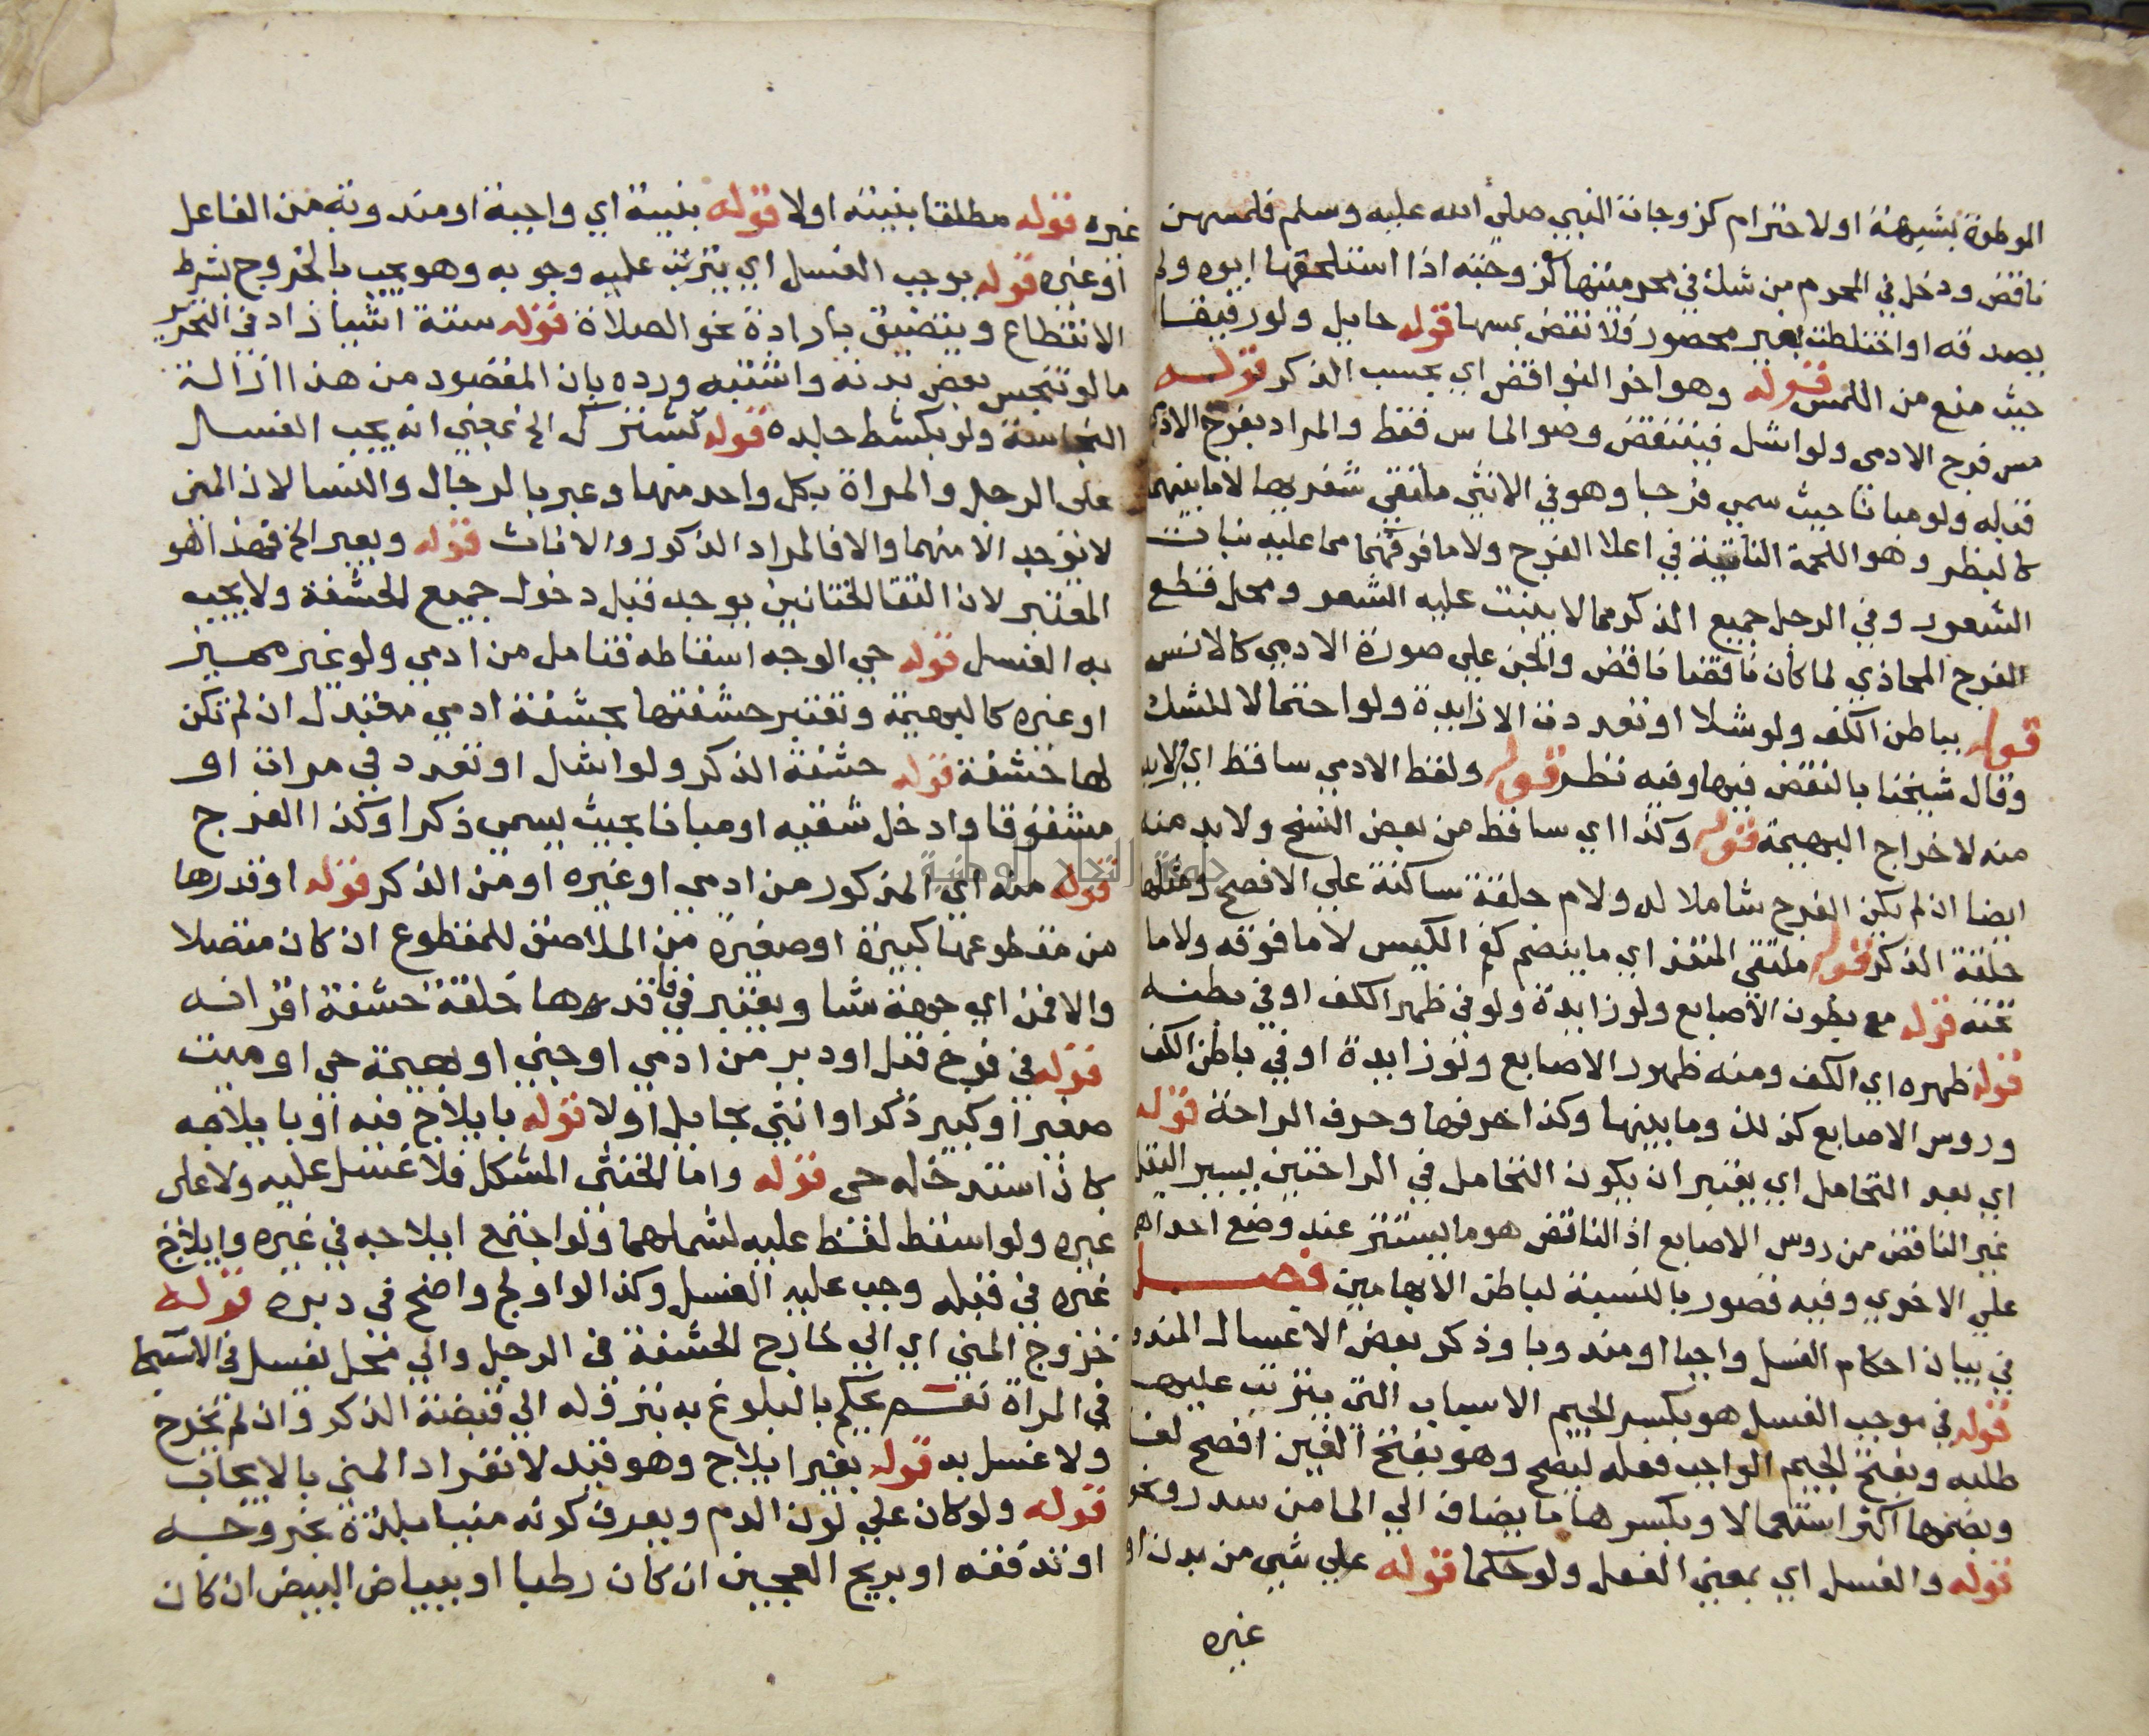 الموطوة بشبهة او لاحترام كزوجات النبي صلى الله عليه وسلم فلمسهن
ناقض ودخل في المحرم من شك في محرميتها كزوجته اذا استلحقها ابوه ولم
يصدقه او اختلطت بغير محصور فلا نقض بمسها قوله حايل ولو رقيقا
حيث منع من اللمس قوله وهو اخر النواقض اي بحسب الذكر قوله
مس فرج الادمي ولو اشل فينتقض وضو الماس فقط والمراد بفرج الادمي
قبله ولو مبانا حيث سمي فرجا وهو في الانثى ملتقى شفريها لا ما بينهما
كالبظر وهو اللحمة الناتية في اعلا الفرج ولا ما فوقهما مما عليه نبات
الشعور وفي الرجل جميع الذكر مما لا ينبت عليه الشعر ومحل قطع
الفرج المحاذي لما كان ناقضا ناقض والجن على صورة الادمي كالانس
قوله بباطن الكف ولو شلا او تعددت الا زايدة ولو احتمالا للشك
وقال شيخنا بالنقض فيها وفيه نظر قوله ولفظ الادمي ساقط اي ولا بد
منه لاخراج البهيمة قوله وكذا اي ساقط من بعض النسخ ولا بد منه
ايضا ان لم يكن الفرج شاملا له ولام حلقة ساكنة على الافصح ومثلها
حلقة الذكر قوله ملتقى المنفذ اي ما ينضم كفم الكيس لا ما فوقه ولا ما
تحته قوله مع بطون الاصابع ولو زايدة ولو في ظهر الكف او في بطنه
قوله ظهره اي الكف ومنه ظهور الاصابع ولو زايدة او في باطن الكف
وروس الاصابع كذلك وما بينها وكذا حرفها وحرف الراحة قوله
اي بعد التحامل اي يعتبر ان يكون التحامل في الراحتين يسير اليقل
غير الناقض من روس الاصابع اذ الناقض هو ما يستتر عند وضع احداهما
على الاخرى وفيه قصور بالنسبة لباطن الابهامين فصل
في بيان احكام الغسل واجبا او مندوبا وذكر بعض الاغسال المندو
قوله في موجب الغسل هو بكسر الجيم الاسباب التي يترتب عليها
طلبه وبفتح الجيم الواجب فعله ليصح وهو بفتح الغين افصح لغة
وبضمها اكثر استعمالا وبكسرها ما يضاف الى الما من سدر ونحوه
قوله والغسل اي بمعنى الفعل ولو حكما قوله على شي من بدن او
غيره
غيره قوله مطلقا بنيته او لا قوله بنية اي واجبة او مندوبة من الفاعل
او غيره قوله يوجب الغسل اي يترتب عليه وجوبه وهو يجب بالخروج بشرط
الانقطاع ويتضيق بارادة نحو الصلاة قوله ستة اشيا زاد في التحرير
ما لو تنجس بعض بدنه واشتبه ورده بان المقصود من هذا ازالة
النجاسة ولو بكشط جلده قوله تشترك الخ بمعنى انه يجب الغسل
على الرجل والمراة بكل واحد منها وعبر بالرجال والنسا لان المنى
لا يوجد الا منهما والا فالمراد الذكور والاناث قوله ويعبر الخ فهذا هو
المعتبر لان التقا الختانين يوجد قبل دخول جميع الحشفة ولا يجب
به الغسل قوله حي الوجه اسقاطه فتامل من ادمي ولو غير مميز
او غيره كالبهيمة وتعتبر حشفتها بحشفة ادمي معتدل ان لم تكن
لها حشفة قوله حشفة الذكر ولو اشل او تعدد في مرات او
مشقوقا وادخل شقيه او مبانا بحيث يسمى ذكرا وكذا الفرج
قوله منه اي المذكور من ادمي او غيره او من الذكر قوله او قدرها
من مقطوعها كبيرة او صغيرة من الملاصق للمقطوع ان كان متصلا
والا فمن اي جهة شا ويعتبر في فاقدها خلقة حشفة اقرانه
قوله في فرج قبل او دبر من ادمي او جني او بهيمة حي او ميت
صغير او كبير ذكر او انثى بحايل او لا قوله بايلاج فيه او بايلاجه
كان استدخاله حي قوله واما الخنثى المشكل فلا غسل عليه ولا على
غيره ولو اسقط لفظ عليه لشملهما ولو اجتمع ايلاجه في غيره وايلاج
غيره في قبله وجب عليه الغسل وكذا لو اولج واضح في دبره قوله
خروج المني اي الى خارج الحشفة في الرجل والى محل يغسل في الاستنجا
في المراة نعم يحكم بالبلوغ به بنزوله الى قصبة الذكر وان لم تخرج
ولا غسل به قوله بغير ايلاج وهو قيد لانفراد المني بالايجاب
قوله ولو كان على لون الدم ويعرف كونه منيا بلذة بخروجه
او تدفقه او بريح العجين ان كان رطبا او ببياض البيض ان كان